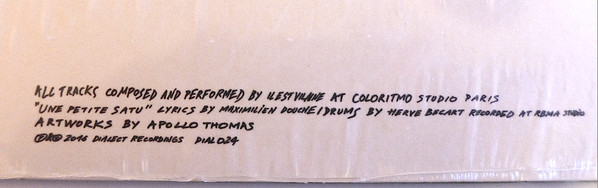 ALL TRACKS COMPOSED AND PERFORMED BY ILESTVILAINE AT COLORITMO STUDIO PARIS
"UNE PETITE SATU" LYRICS BY MAXIMILIEN DOUCHE / DRUMS BY HERVE BECART RECORDED AT RBMA STUDIO
ARTWORKS BY APOLLO THOMAS
Ⓟ&© 2016 DIALECT RECORDINGS DIAL024